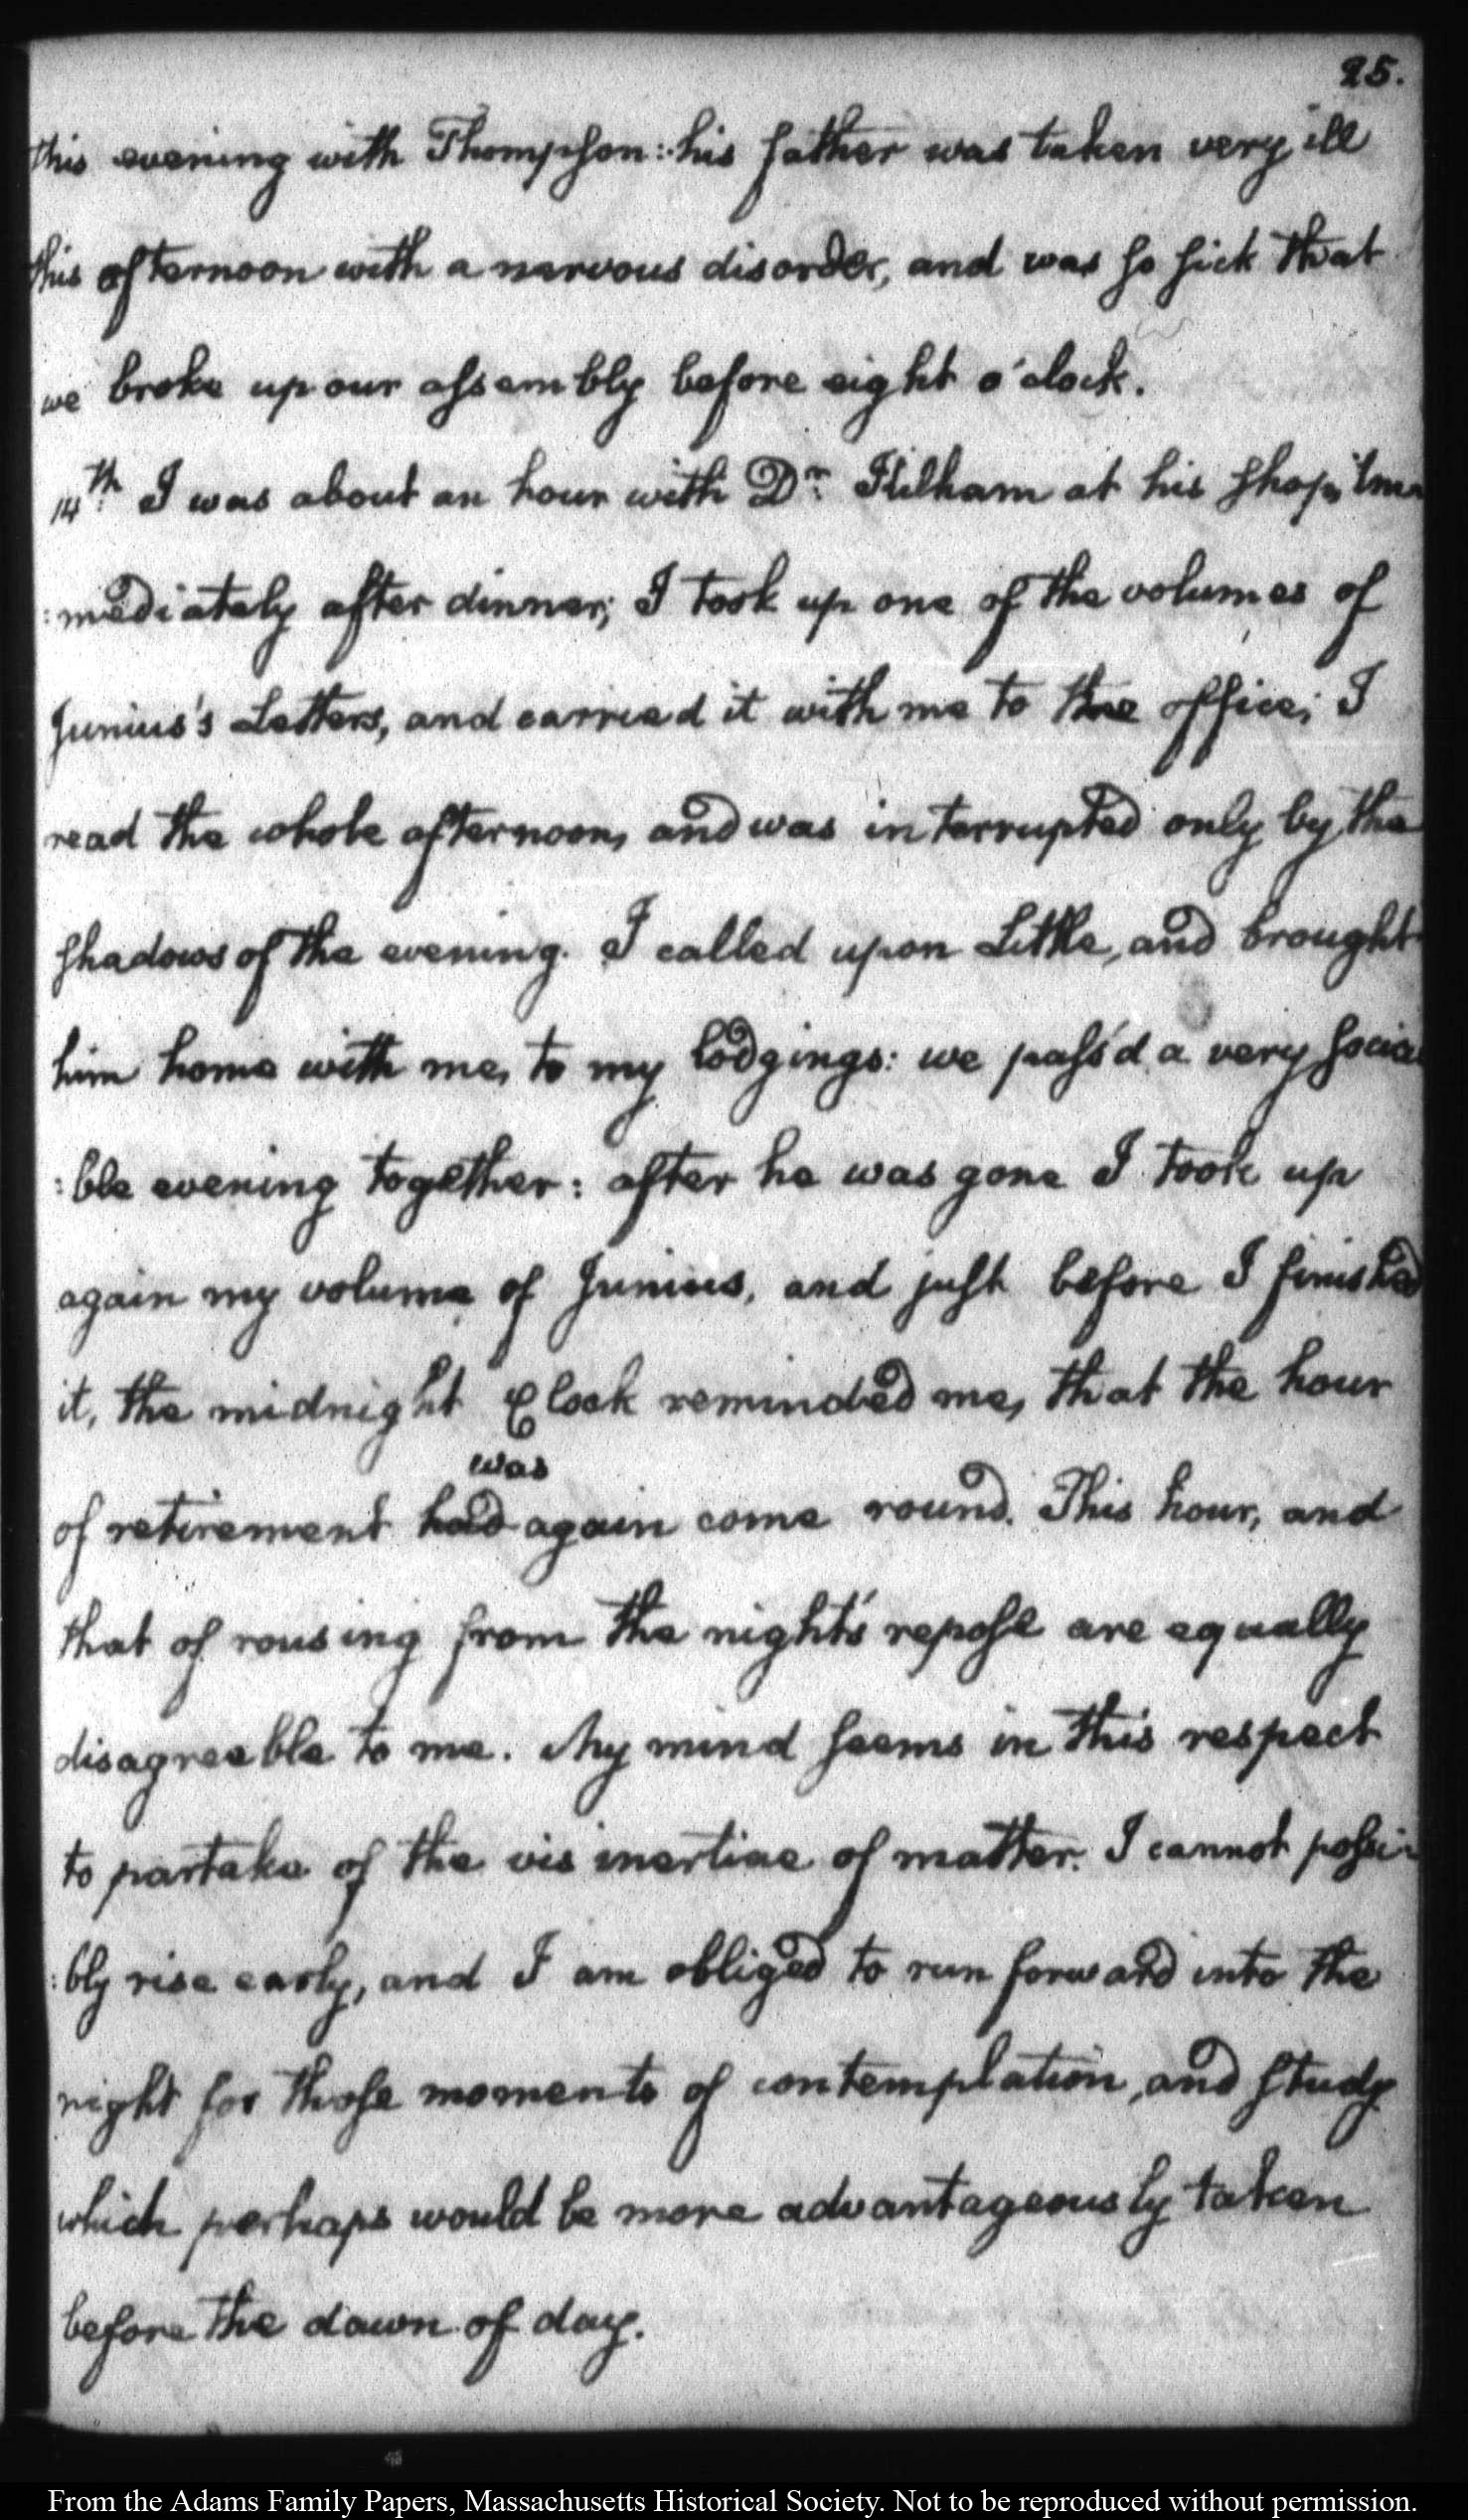 25.
this evening with Thompson: his father was taken very ill
this afternoon with a nervous disorder, and was so sick that
we broke up our assembly before eight o'clock.
14th. I was about an hour with Dr. Kilham at his shop, Im-
:mediately after dinner; I took up one of the volumes of
Junius's Letters, and carried it with me to the office; I
read the whole afternoon, and was interrupted only by the
shadows of the evening. I called upon Little, and brought
him home with me, to my lodgings: we pass'd a very socia
:ble evening together: after he was gone I took up
again my volume of Junius, and just before I finished
it, the midnight Clock reminded me, that the hour
was
of retirement had again come round. This hour, and
that of rousing from the night's repose are equally
disagreeable to me. My mind seems in this respect
to partake of the vis inertiae of matter. I cannot possi-
:bly rise early, and I am obliged to run forward into the
night for those moments of contemplation, and study
which perhaps would be more advantageously taken
before the dawn of day.
From the Adams Family Papers, Massachusetts Historical Society. Not to be reproduced without permission.